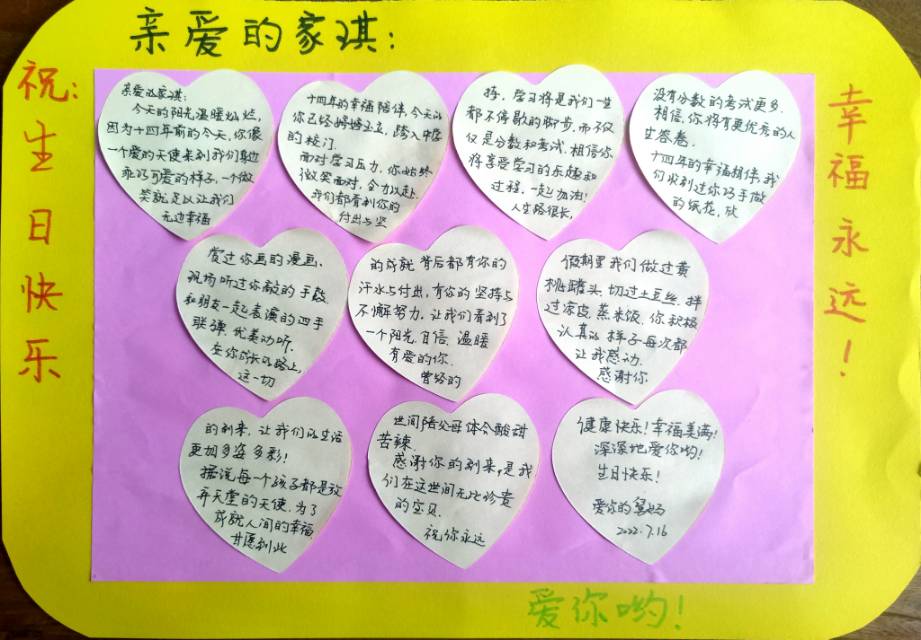 亲爱的家琪:
祝:
生
日
快
乐
亲爱的家琪:
今天的阳光温暖灿烂,
因为十四年前的今天,你像
一个爱的天使来到我们身边
乖巧可爱的样子,一个微
笑就足以让我们
无边幸福
十四年的幸福陪伴,今天的
你已经婷婷玉立,踏入中学
的校门.
面对学习压力,你始终
微笑面对,全力以赴.
我们都看到你的
付出与坚
持,学习将是我们一生
都不停歇的脚步,而不仅
仅是分数和考试.相信你
将享受学习的乐趣和
过程.一起加油!
人生路很长,
没有分数的考试更多.
相信,你将有更优秀的人
生答卷.
十四年的幸福相伴,我
们收到过你巧手做
的纸花,欣
赏过你画的漫画,
现场听过你敲的手鼓
和朋友一起表演的四手
联弹 优美动听.
在你成长的路上,
这一切
的成就 背后都有你的
汗水与付出,有你的坚持与
不懈努力.让我们看到了
一个阳光.自信.温暖
有爱的你.
曾经的
假期里我们做过黄
桃罐头.切过土豆丝.拌
过凉皮.蒸米饭.你积极
认真的 样子每次都
让我感动.
感谢你
的到来,让我们的生活
更加多姿多彩!
据说每一个孩子都是放
弃天堂的天使.为了
成就人间的幸福.
甘愿到此
世间陪父母体会酸甜
苦辣.
感谢你的到来,是我
们在这世间无比珍贵
的宝贝.
祝你永远
健康快乐!幸福美满!
深深地爱你哟!
生日快乐!
爱你的舅妈
2022.7.16
幸
福
永
远
!
爱你哟!